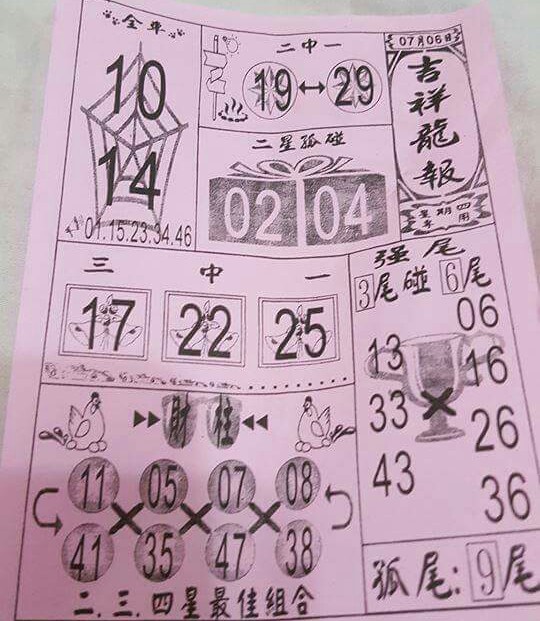 全車
10
14
01.15.23.34.46
二中一
19↔29
二星孤碰
02 04
07月06日
吉祥龍報
星期四
專用
三中一
17 22 25
强尾
3尾碰6尾
06
13 16
33 × 26
43 36
財柱
11 05 07 08
× × ×
41 35 47 38
二.三.四星最佳組合
孤尾:9尾